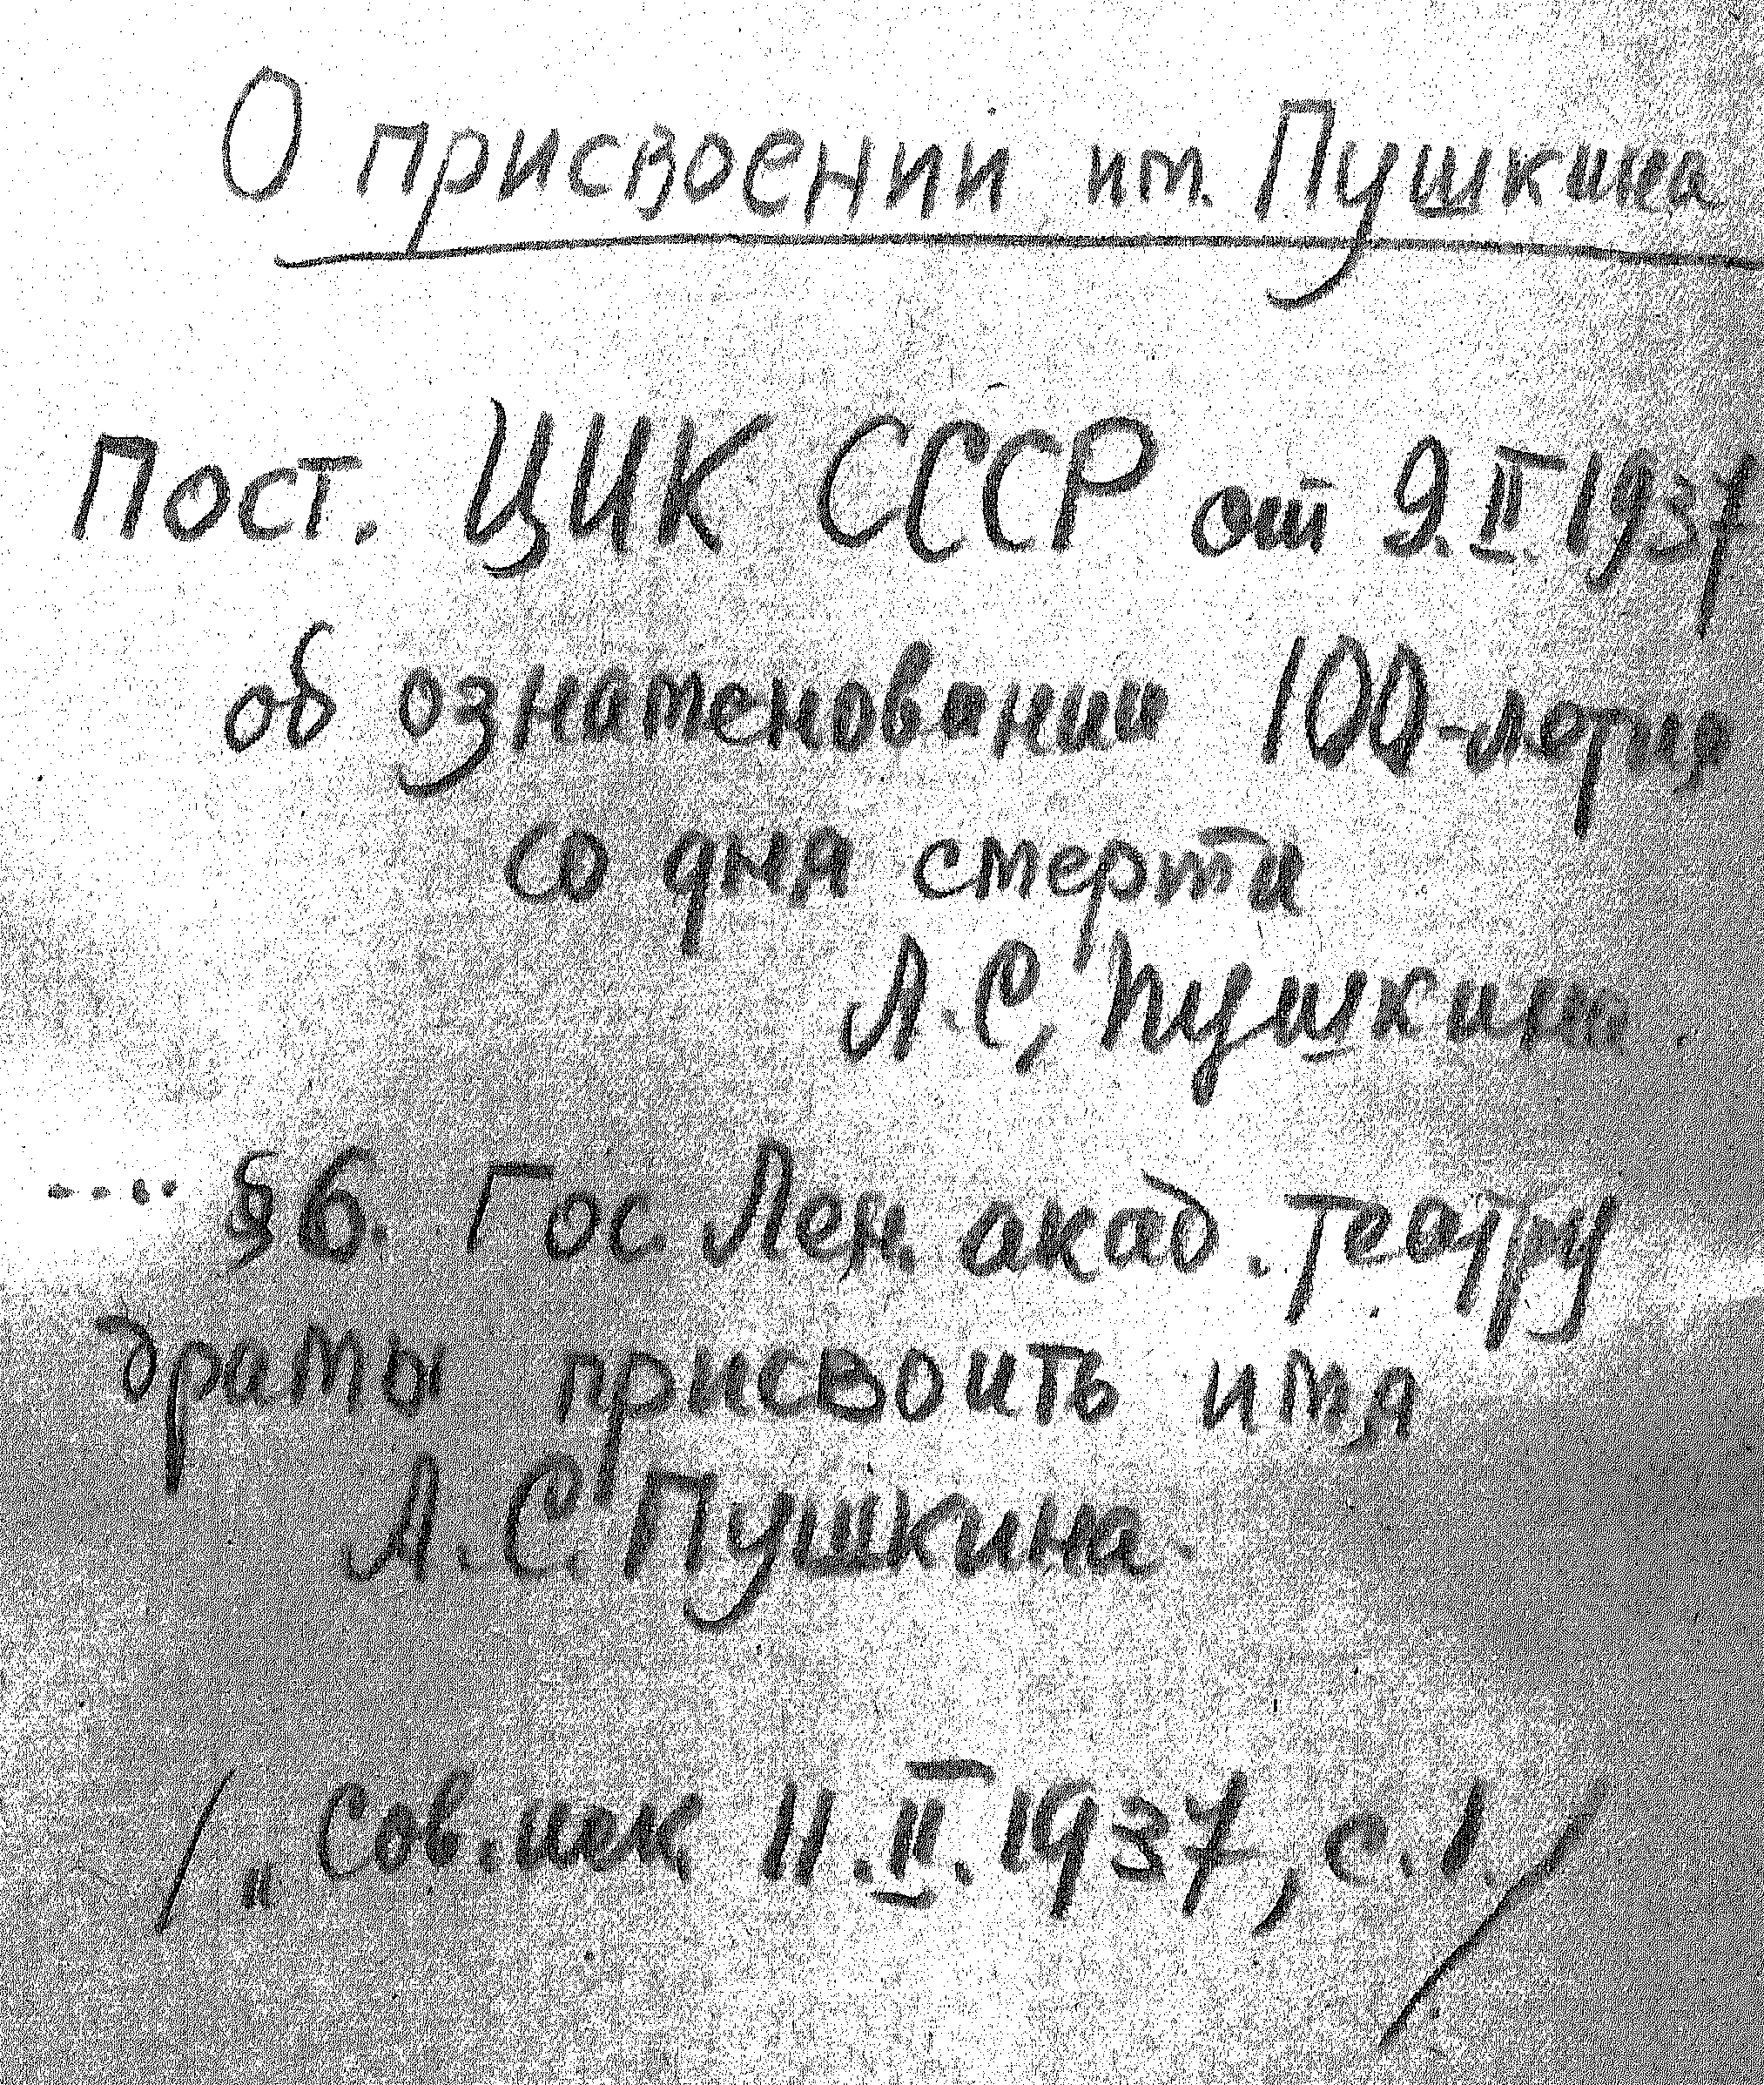 О присвоении им. Пушкина
Пост. ЦИК СССР от 9.II.1937
об ознаменовании 100-летия
со дня смерти
А.С. Пушкина.
.... §6. Гос Лен. акад. театру
драмы присвоить имя
А.С. Пушкина.
/„Сов. иск 11.II.1937, с.1./